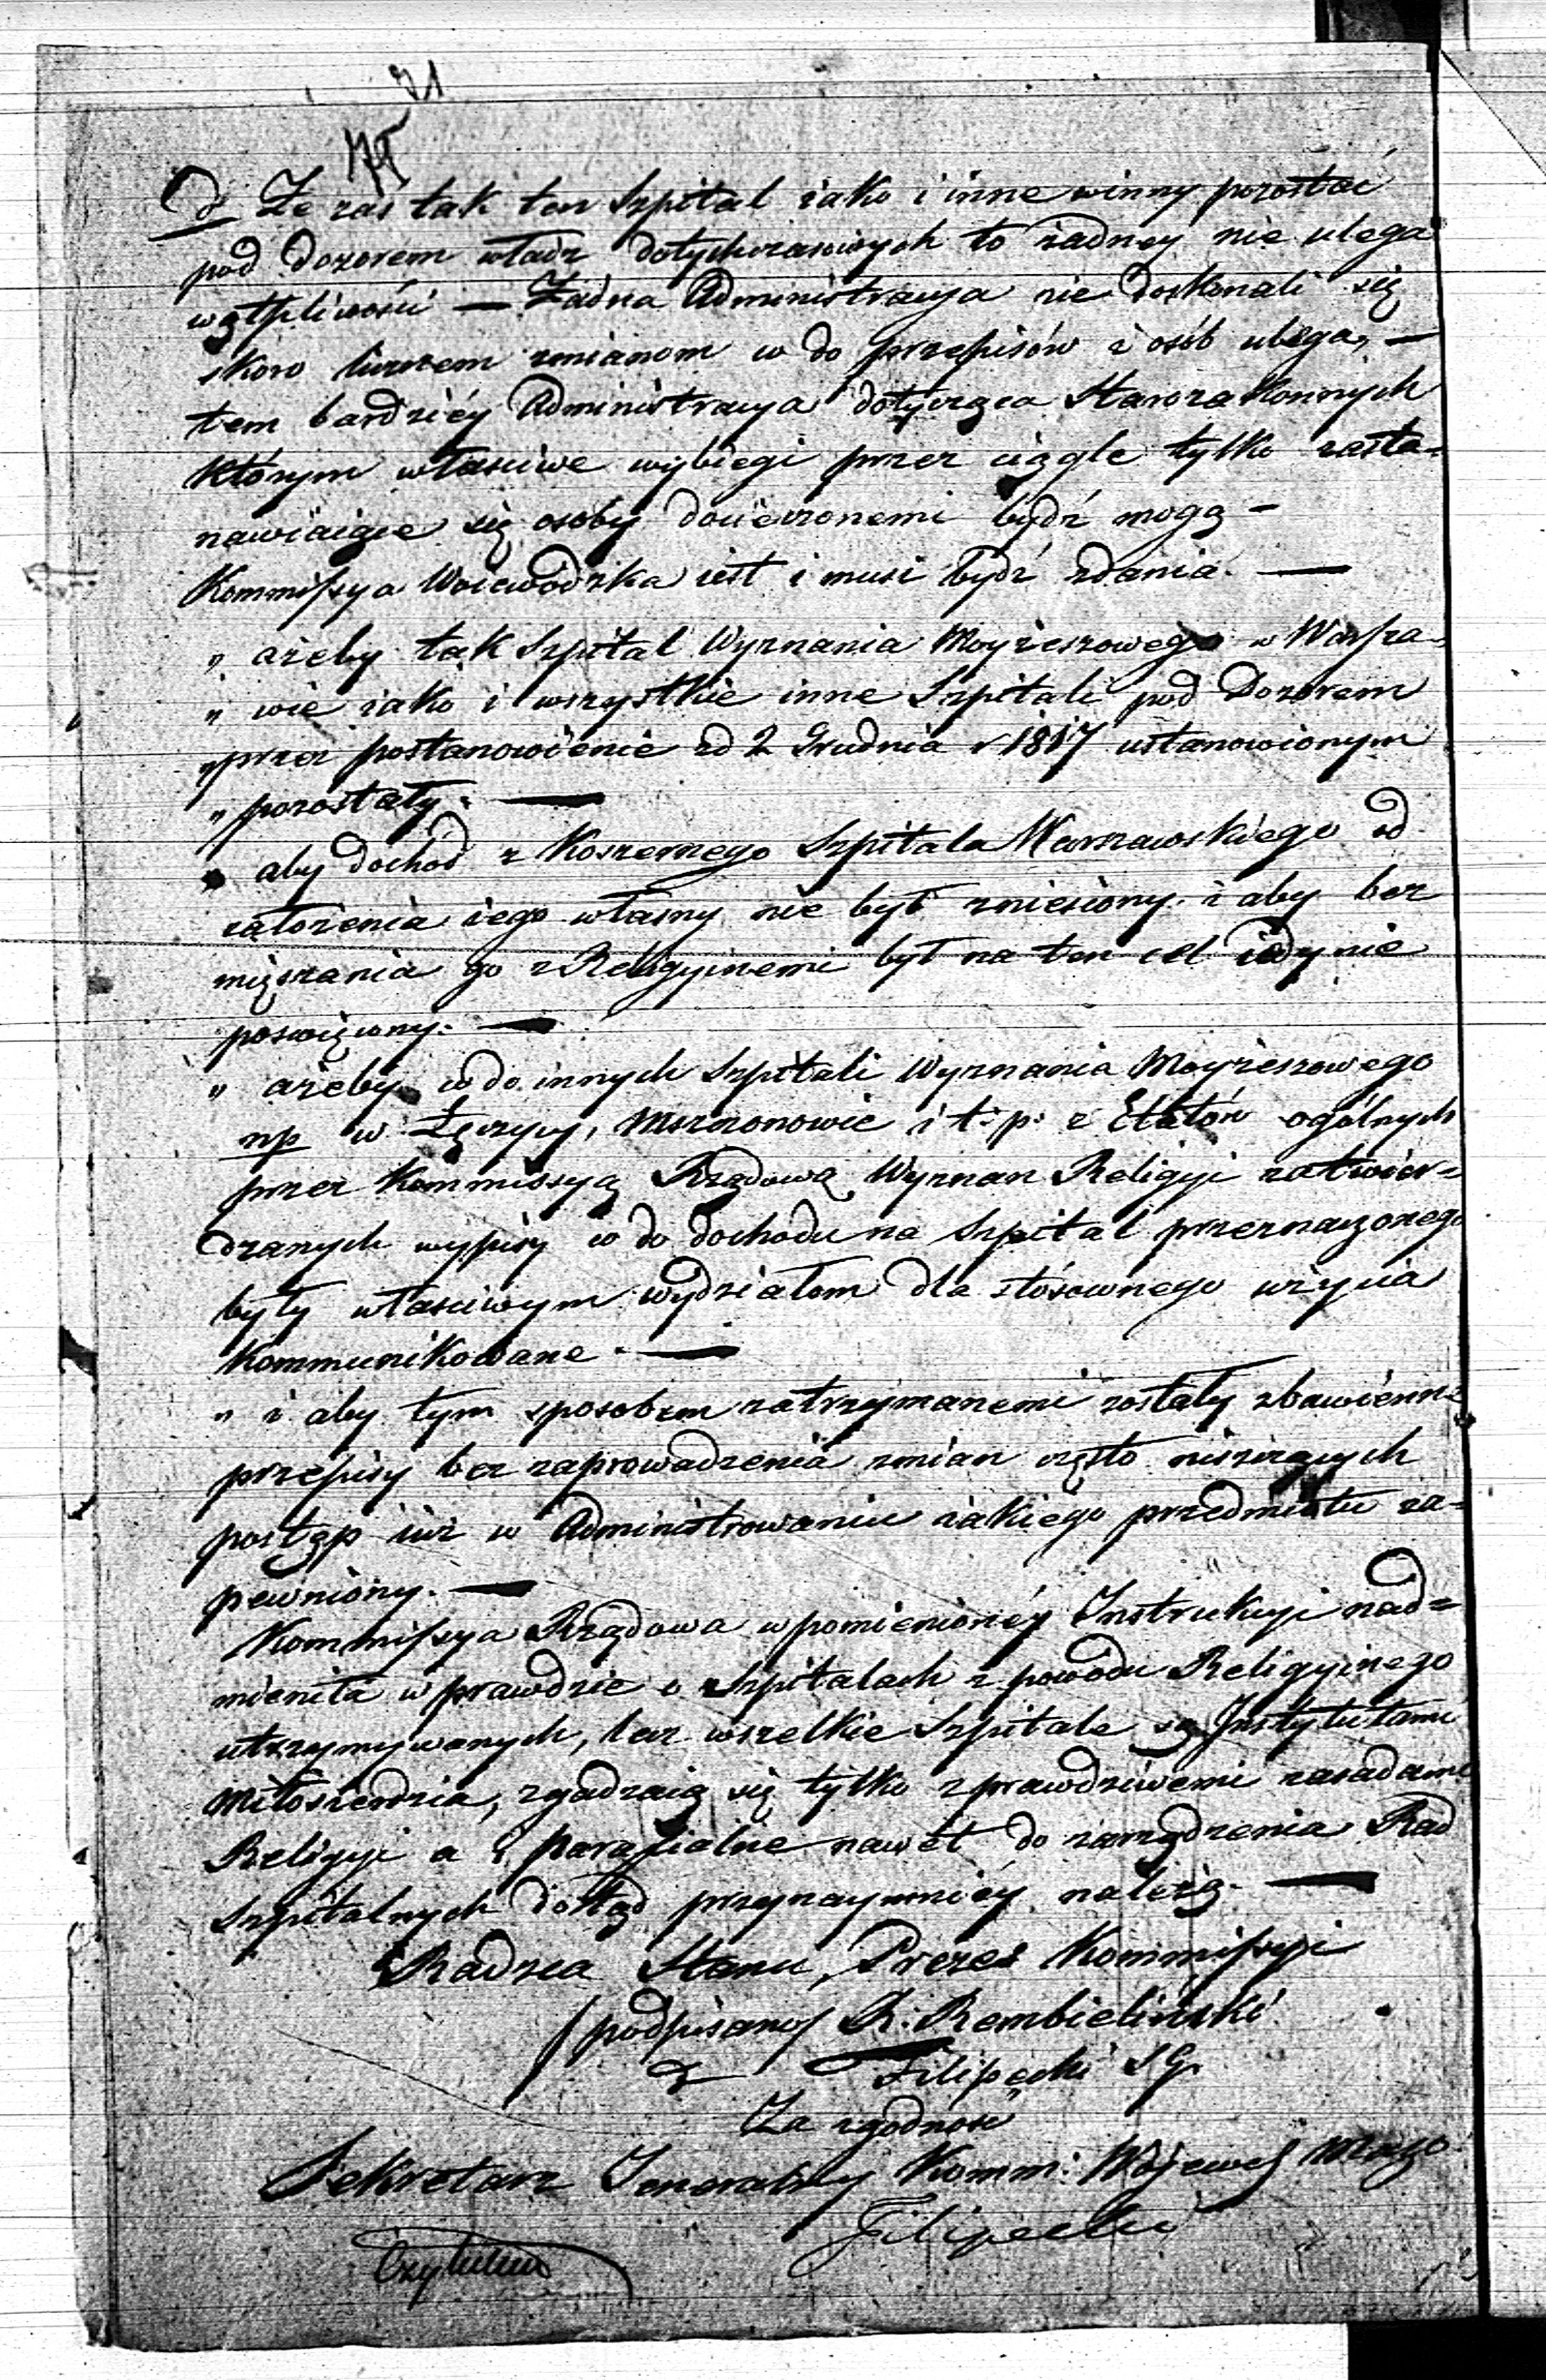 71
d. Że zaś tak ten Szpital iako i inne winny pozostać
pod dozorem władz dotychczasowych to żadney nie ulega
wątpliwości — Żadna Administracya nie doskonali się
skoro licznem zmianom co do przepisów i osób ulega, —
tem bardziéy Administracya dotycząca Starozakonnych
którym właściwe wybiegi przez ciągle tylko zasta-
nawiaiące się osoby docieczonemi bydź mogą —
Kommissya Woiewódzka iest i musi bydź zdania. —
„ ażeby tak Szpital Wyznania Moyżeszowego w Warsza-
„ wie iako i wszystkie inne Szpitali pod Dozorem
„ przez postanowienie zd 2 Grudnia r 1817 ustanowionym
„ pozostały. —
„ aby dochód z Koszernego Szpitala Warszawskiego od
założenia iego własny nie był zniesiony. i aby bez
mięszania go z Religyinemi był na ten cel iedynie
poswięcony. —
„ ażeby co do innych Szpitali Wyznania Moyżeszowego
np w Łęczycy, Mszczonowie i t: p: z Etatów ogólnych
przez Kommissyą Rządową Wyznan Religyi zatwier=
dzanych wypisy co do dochodu na Szpital przeznaczonego
były własciwym wydziałom dla stósownego użycia
Kommunikowane. —
„ i aby tym sposobem zatrzymanemi zostały zbawienne
przepisy bez zaprowadzenia zmian często niszczących
postęp iuż w Administrowaniu iakiego przedmiotu za-
pewniony. —
Kommissya Rządowa wpomienionéy Instrukcyi nad=
mieniła wprawdzie o Szpitalach z powodu Religyinego
utrzymywanych, lecz wszelkie Szpitale są Instytutami
Miłosierdzia, zgadzaią się tylko z prawdziwemi zasadami
Religyi a parafialne nawet do zarządzenia Rad
Szpitalnych dotąd przynaymniéy należą. —
Radzca Stanu, Prezes Kommissyi
/podpisano/ R. Rembieliński
Filipecki SG.
Za zgodność
Sekretarz Jeneralny Komm: Wojewo Mazo
Filipecki